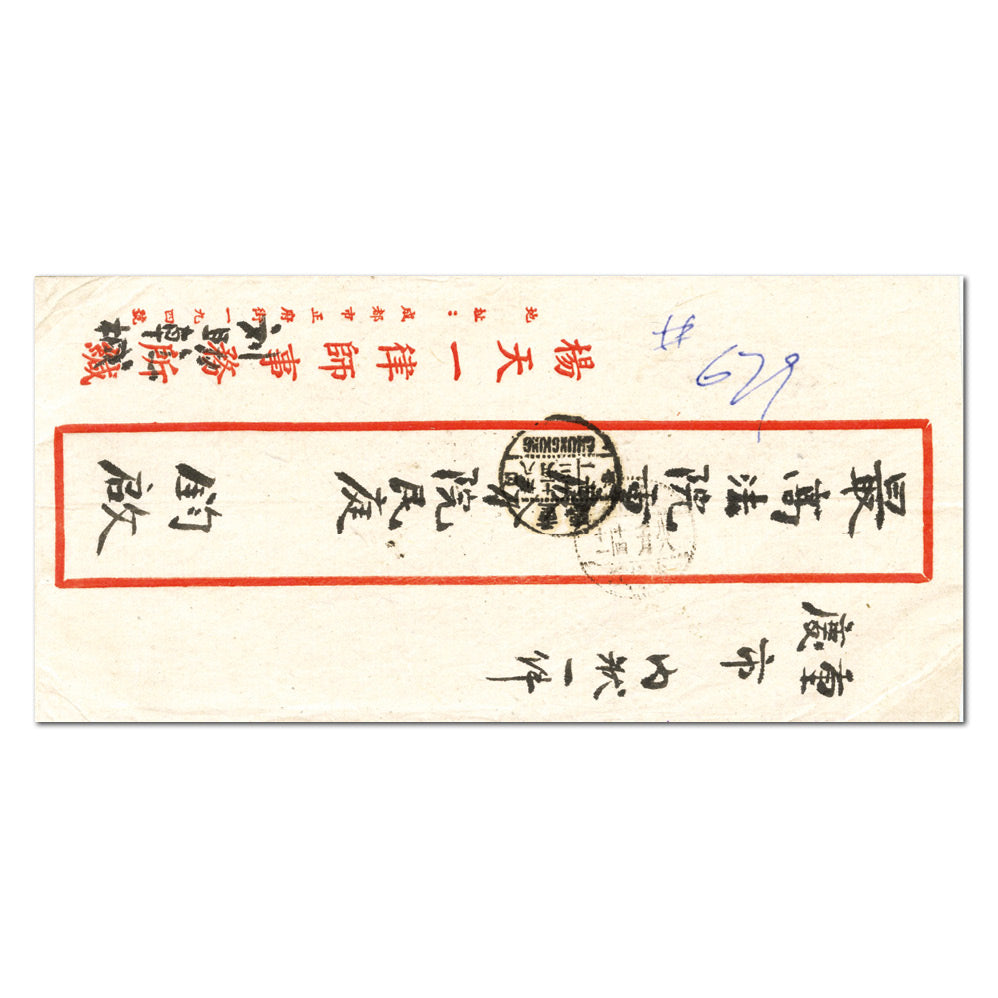 重慶市 內狀一件
最高法院重慶分院民庭 鈞啟
楊天一律師事務所緘
地址：成都市正府街一九四號
CHUNGKING
#679